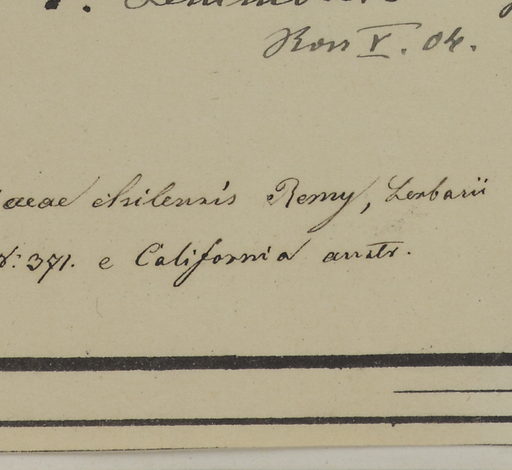 Ross V. 04.
chilensis Remy, herbarii
No. 371. e California austr.